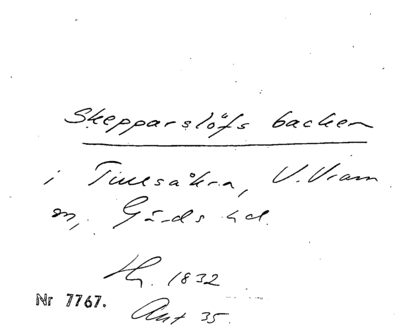 Skepparslöfs backen
i Tullsåkra, V. Vram
sn, Gärds hd.
Hg. 1832
Nr 7767.
Ant 35.